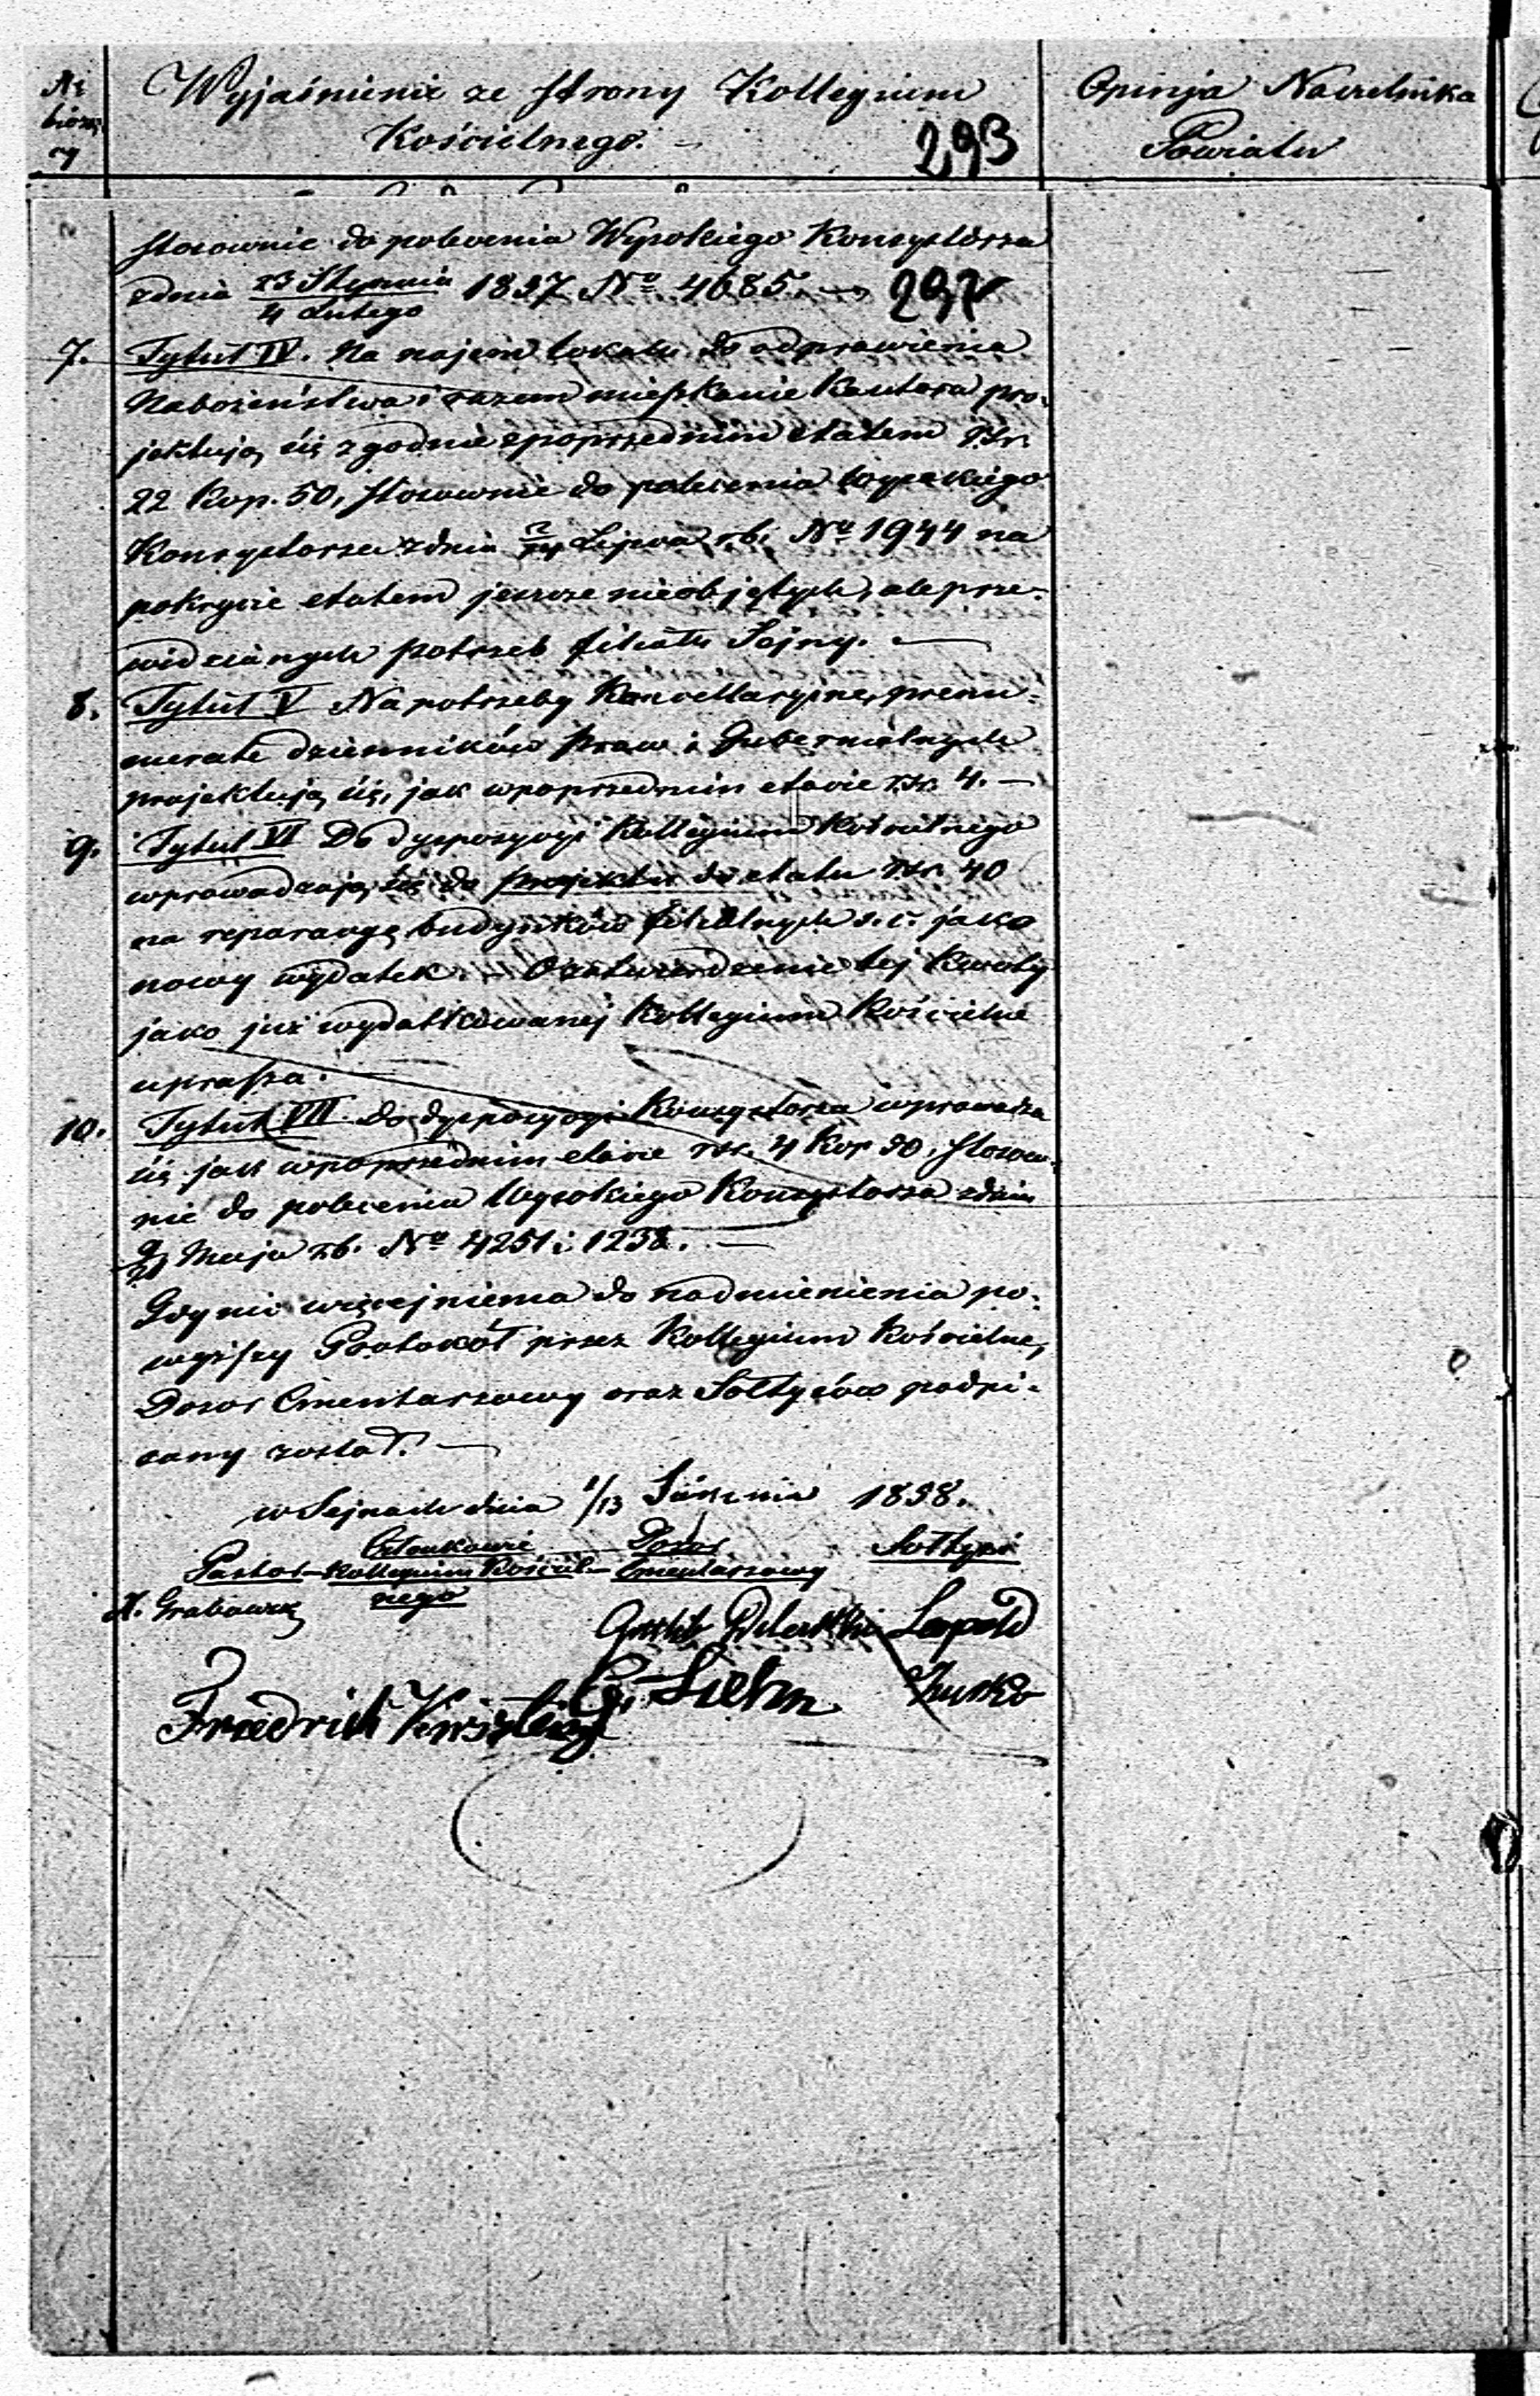 Nr
bieżą
cy
Wyjaśnienie ze strony Kollegium
Kościelnego.
293
Opinja Naczelnika
Powiatu
stosownie do polecenia Wysokiego Konsystorza
zdnia 23 Stycznia/4 Lutego 1857 No 4685. — 292
7. Tytuł IV. Na najem lokalu do odprawienia
Nabożeństwa i razem mieszkanie Kantora pro-
jektują się zgodnie zpoprzednim etatem rsr.
22 kop. 50, stosownie do polecenia wysokiego
Konsystorza zdnia Lipca r.b. No 1944 na
pokrycie etatem jeszcze nieobjętych, ale prze-
widzianych potrzeb filiału Sejny. —
8. Tytuł V Na potrzeby Kancellaryjne, prenu-
meratę dzienników praw i Gubernialnych
projektują się, jak wpoprzednim etacie rsr. 4. —
9. Tytuł VI Do dyspozycyi Kollegium Kościelnego
wprowadzają się do projektu do etatu rsr. 40
na reparacyę budynków filialnych s. c. jako
nowy wydatek. O zatwierdzenie tej kwoty
jako już wydatkowanej Kollegium Kościelne
uprasza.
10. Tytuł VII. Do dyspozycyi Konsystorza wprowadza
się jak wpoprzednim etacie rsr. 4 kop 90, stosow-
nie do polecenia Wysokiego Konsystorza zdnia
9/21 Maja r.b. No 4251 i 1238. —
Gdy nic więcej niema do nadmienienia po-
wyższy Protokół przez Kollegium Kościelne,
Dozór Cmentarzowy oraz Sołtysów podpi-
sany został. —
w Sejnach dnia 1/13 1858.
Pastor Członkowie Kollegium Kościel- Dozór Cmentarzowy Sołtysi
nego
Grabowski
Gottlieb Leopold
Friedrich G.